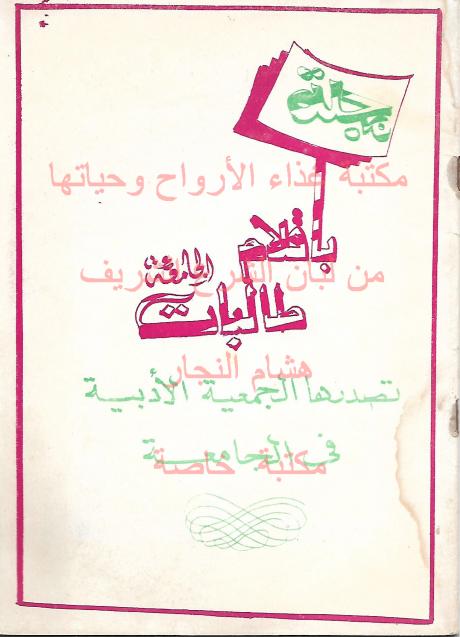 مجلة
مكتبة غذاء الأرواح وحياتها
بأقلام
من لبان الشرع الشريف
طالبات الجامعة
هشام النجار
تصدرها الجمعية الأدبية
في الجامعة
مكتبة خاصة